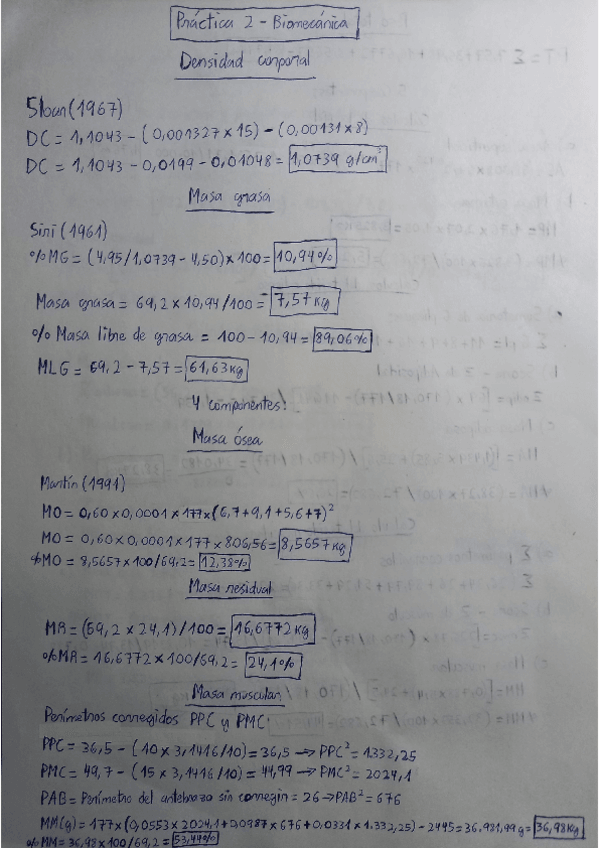 Práctica 2 - Biomecánica
Densidad corporal
Sloan (1967)
DC = 1,1043 - (0,001327 × 15) - (0,00131 × 8)
DC = 1,1043 - 0,0199 - 0,01048 = 1,0739 g/cm³
Masa grasa
Siri (1961)
%MG = (4,95/1,0739 - 4,50) × 100 = 10,94%
Masa grasa = 69,2 × 10,94/100 = 7,57 Kg
% Masa libre de grasa = 100 - 10,94 = 89,06%
MLG = 69,2 - 7,57 = 61,63 kg
4 componentes:
Masa ósea
Martín (1991)
MO = 0,60 × 0,0001 × 177 × (6,7 + 9,1 + 5,6 + 7)²
MO = 0,60 × 0,0001 × 177 × 806,56 = 8,5657 kg
%MO = 8,5657 × 100/69,2 = 12,38%
Masa residual
MR = (69,2 × 24,1)/100 = 16,6772 kg
%MR = 16,6772 × 100/69,2 = 24,1%
Masa muscular
Perímetros corregidos PPC y PMC:
PPC = 36,5 - (10 × 3,1416/10) = 36,5 → PPC² = 1332,25
PMC = 49,7 - (15 × 3,1416/10) = 44,99 → PMC² = 2024,1
PAB = Perímetro del antebrazo sin corregir = 26 → PAB² = 676
MM(g) = 177 × (0,0553 × 2024,1 + 0,0987 × 676 + 0,0331 × 1.332,25) - 2445 = 36.981,99 g = 36,98 Kg
%MM = 36,98 × 100/69,2 = 53,44%